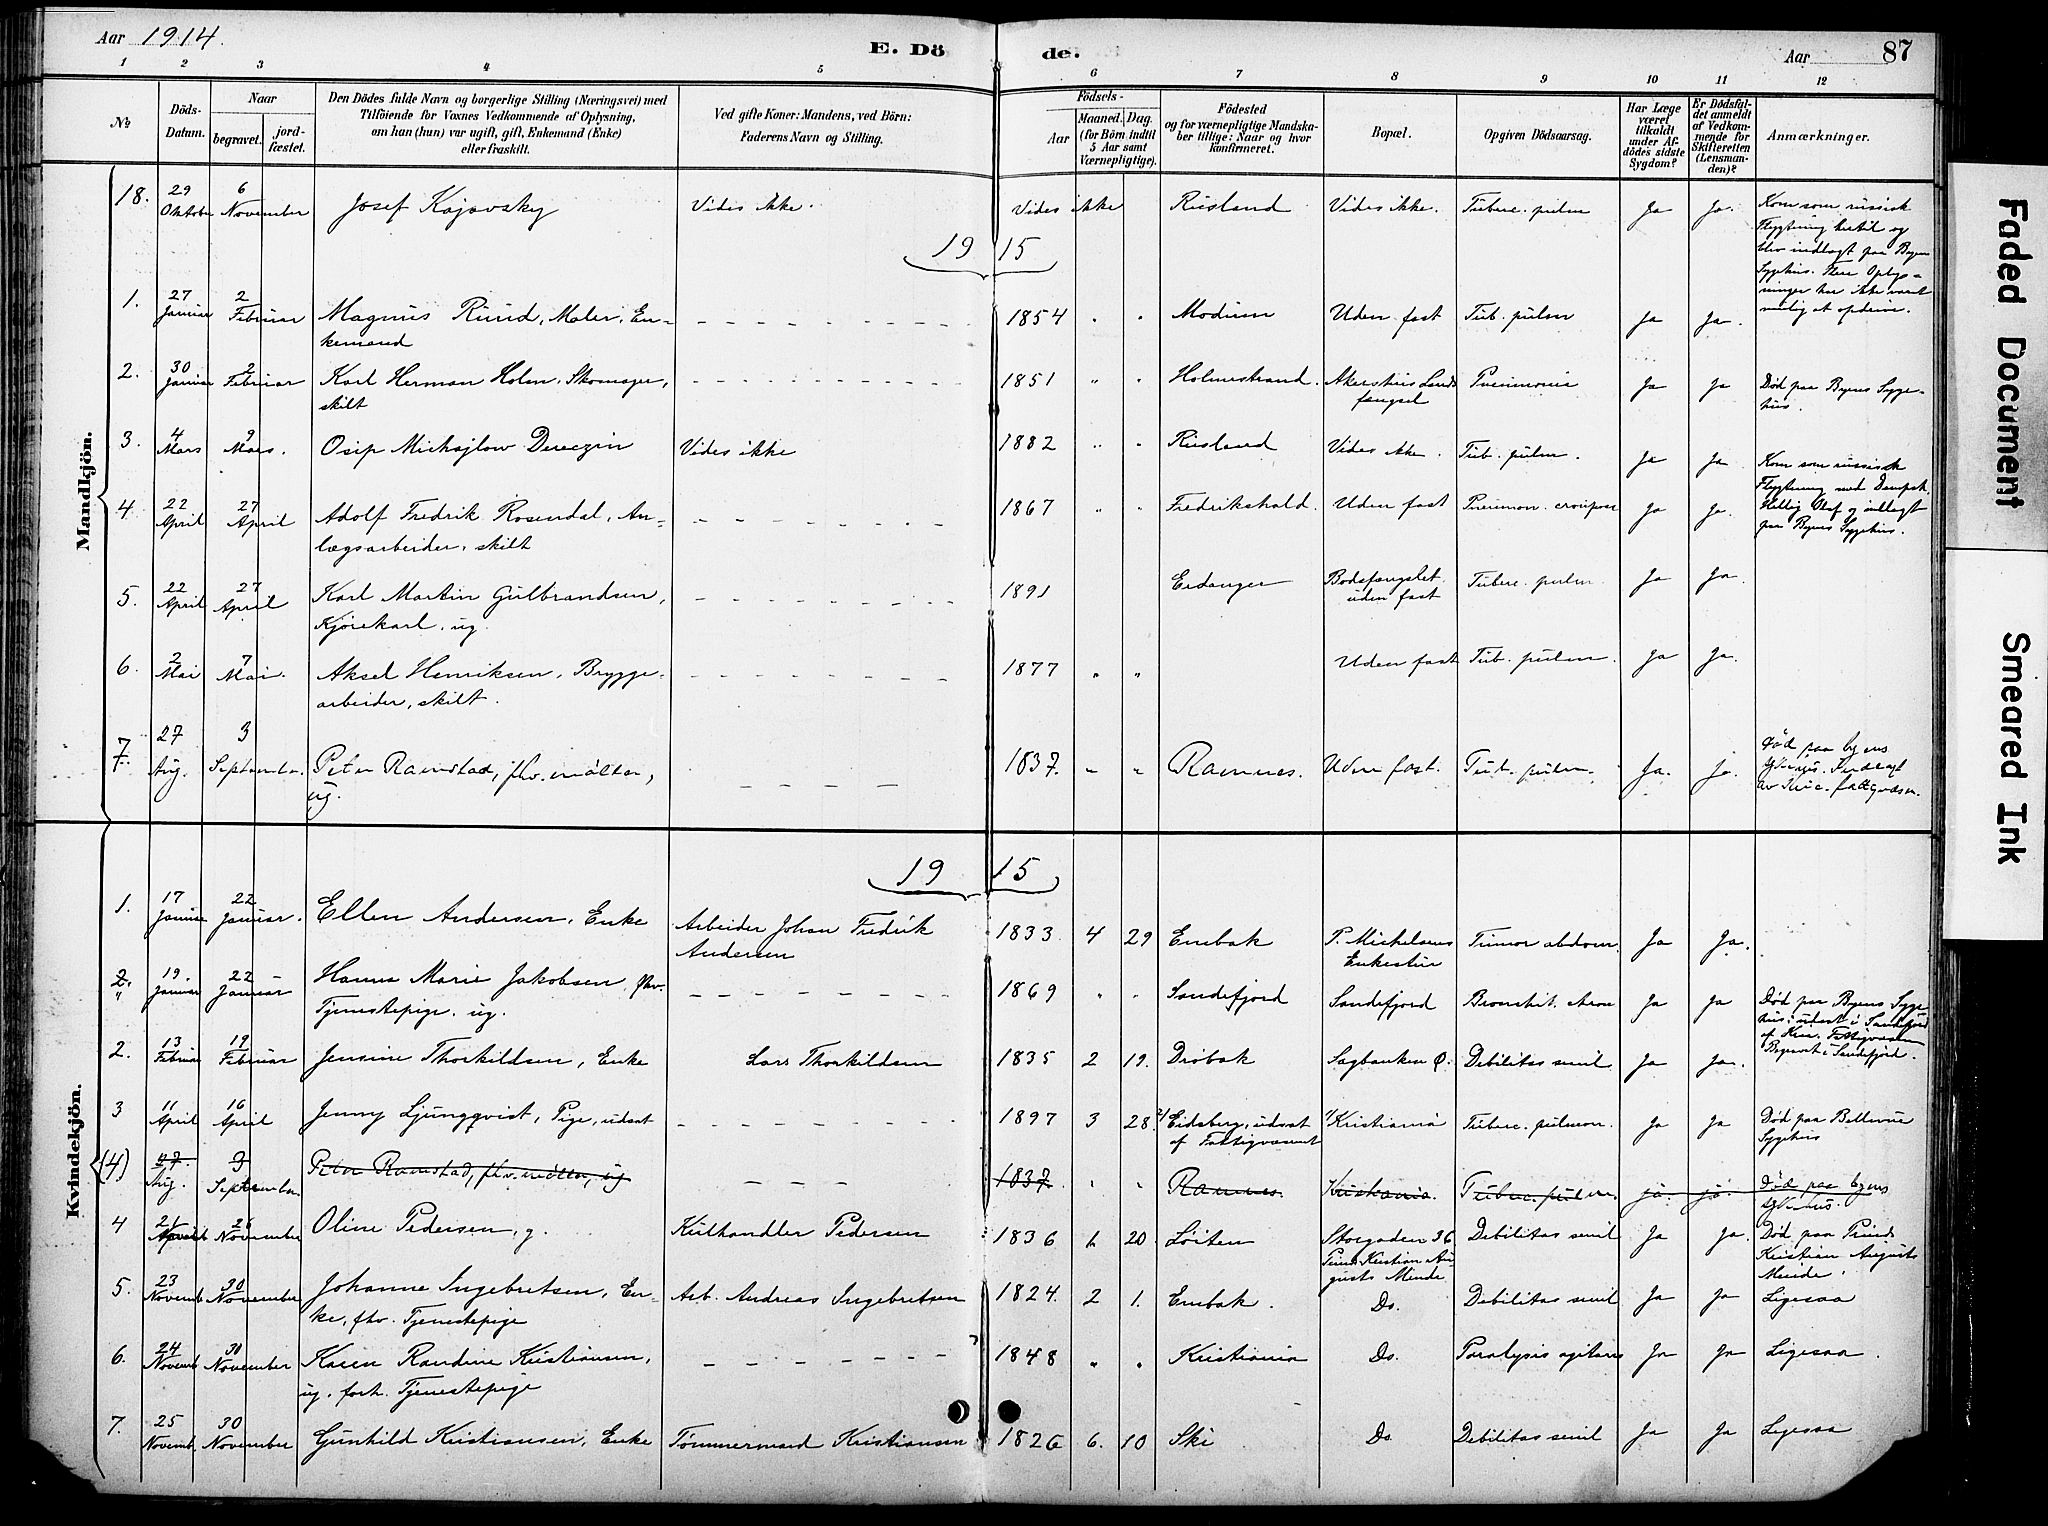 Aar 1914.
E. Döde.
Aar 87
1 2 3 4 5 6 7 8 9 10 11 12
No
Döds-Datum.
Naar
begravet.
jordfæstet.
Den Dödes fulde Navn og borgerlige Stilling (Næringsvei) med
Tilföiende for Voxnes Vedkommende af Oplysning,
om han (hun) var ugift, gift, Enkemand (Enke)
eller fraskilt.
Ved gifte Koner: Mandens, ved Börn:
Faderens Navn og Stilling.
Födsels-
Aar
Maaned. Dag.
(for Börn indtil
5 Aar samt
Værnepligtige).
Födested
og for værnepligtige Mandska-
ber tillige: Naar og hvor
konfirmeret.
Bopæl.
Opgiven Dödsaarsag.
Har Læge
været
tilkaldt
under Af-
dödes sidste
Sygdom?
Er Dödsfal-
det anmeldt
af Vedkom-
mende for
Skifteretten
(Lensman-
den)?
Anmærkninger.
Mandkjön.
18. 29 Oktober 6 November Josef Kajovsky Vides ikke. Vides ikke Rusland Vides ikke. Tuberc. pulm Ja Ja.
Kom som russisk
Flygtning hertil og
blev indlagt paa Byens
Sygehus. Flere Oplys-
ninger har ikke været
mulig at opdrive.
1915
1. 27 Januar 2 Februar Magnus Ruud, Maler, En-
kemand
1854 " " Modum Uden fast Tub. pulm Ja Ja.
2. 30 Januar 2 Februar Karl Herman Holm, Skomager,
skilt
1851 " " Holmestrand. Akershus Lands
fængsel
Pneumonia Ja Ja
Död paa Byens Syge-
hus.
3. 4 Mars 9 Mars. Osip Michajlow Dereczin Vides ikke 1882 " " Rusland Vides ikke. Tub. pulm. Ja Ja
Kom som russisk
Flygtning med Dampsk.
Hellig Olaf og indlagt
paa Byens Sygehus.
4 22 April 27 April Adolf Fredrik Rosendal, An-
lægsarbeider, skilt
1867 " " Fredrikshald. Uden fast Pneumon. croupos Ja Ja.
5. 22 April 27 April Karl Martin Gulbrandsen,
Kjörekarl, ug.
1891 Eidanger Bodsfængslet
uden fast
Tuberc. pulm Ja Ja.
6. 2 Mai 7 Mai. Aksel Henriksen, Brygge-
arbeider, skilt.
1877 " " Uden fast Tub. pulm. Ja Ja.
7. 27 Aug. 3 September. Peter Ramstad, fhv. mölter,
ug.
1837. " " Ramnes. Uden fast. Tub. pulm. Ja. ja.
Död paa byens
sykehus.
av Kric. fattigvæsen.
Kvindekjön.
1915
1. 17 Januar 22 Januar. Ellen Andersen, Enke Arbeider Johan Fredrik
Andersen
1833 4 29 Enebak P. Michelsens
Enkestue
Tumor abdom. Ja Ja.
2. " 19. Januar 22 Januar Hanna Marie Jakobsen, fhv.
Tjenestepige. ug.
1869 " " Sandefjord Sandefjord Bronchit. chron Ja Ja
Död paa Byens Syge-
hus; udsat i Sandefjord
af Kria. Fattigvæsen
Begravet i Sandefjord.
2. 13 Februar 19 Februar Jensine Thorkildsen, Enke Lars Thorkildsen 1835 2 19. Dröbak Sagbanken Ö. Debilitas senil Ja Ja.
3 11 April 16 April Jenny Ljungqvist, Pige, udsat 1897 3 28 Eidsberg, udsat
af Fattigvæsenet
Kristiania Tuberc. pulmon. Ja Ja
Död paa Bellevue
Sygehus
(4) 27. Aug. 3 September Peter Ramstad, fhv. mölter, ug 1837. " " Ramnes. Kristiania. Tuberc. pulm. ja. ja.
Död paa byens
sykehus.
4 21 November 26 November Oline Pedersen, g. Kulhandler Pedersen 1836 1 20 Löiten Storgaden 36
Prinds Kristian Au-
gusts Minde
Debilitas senil Ja Ja.
Död paa Prinds
Kristian Augusts
Minde.
5. 23 Novemb. 30 November Johanne Ingebretsen, En-
ke, fhv. Tjenestepige
Arb. Andreas Ingebretsen 1824. 2 1. Enebak. Do. Debilitas senil Ja Ja Ligesaa
6. 24 Novemb. 30 November Karen Randine Kristiansen,
ug. forh. Tjenestepige
1848 " " Kristiania Do. Paralysis agitans Ja Ja Ligesaa.
7. 25 Novemb. 30 November Gunhild Kristiansen, Enke Tömmermand Kristiansen 1826 6. 10 Ski Do. Debilitas senil Ja Ja Ligesaa
Faded Document
Smeared Ink